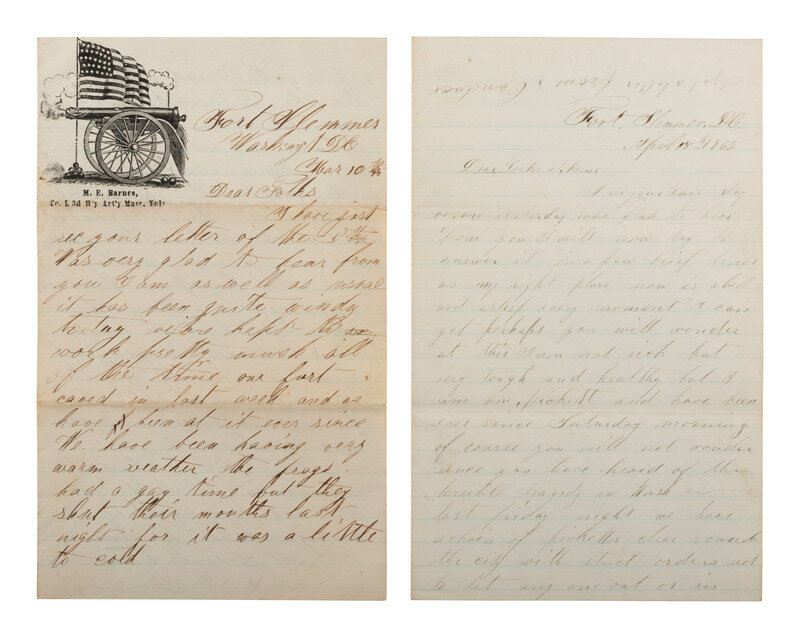 M. E. Barnes,
Co. L 3d H'y Art'y Mass. Vols
Fort Slemmer
Washingt DC
Mar 10th
Dear Folks
I have just
rec your letter of the 5th
Was very glad to hear from
you I am as well as usual
it has been quite windy
today we are kept to
work pretty much all
of the time our fort
caved in last week and we
have been at it ever since
We have been having very
warm weather the frogs
had a gay time but they
shut their mouths last
night for it was a little
to cold
I got a letter from Candace
Fort. Slemmer, DC
April 18th 1865
Dear Folks at home
I recd your day
before yesterday was glad to hear
from you I will now try to
answer it in a few brief lines
as my right place now is abed
and asleep every moment I can
get perhaps you will wonder
at this I am not sick but
very tough and healthy but I
am on pickett and have been
ever since Saturday morning
of course you will not wonder
since you have heard of the
terrible tragedy in Wash
last friday night we have
a chain of picketts clear round
the city with strict orders not
to let any one out or in